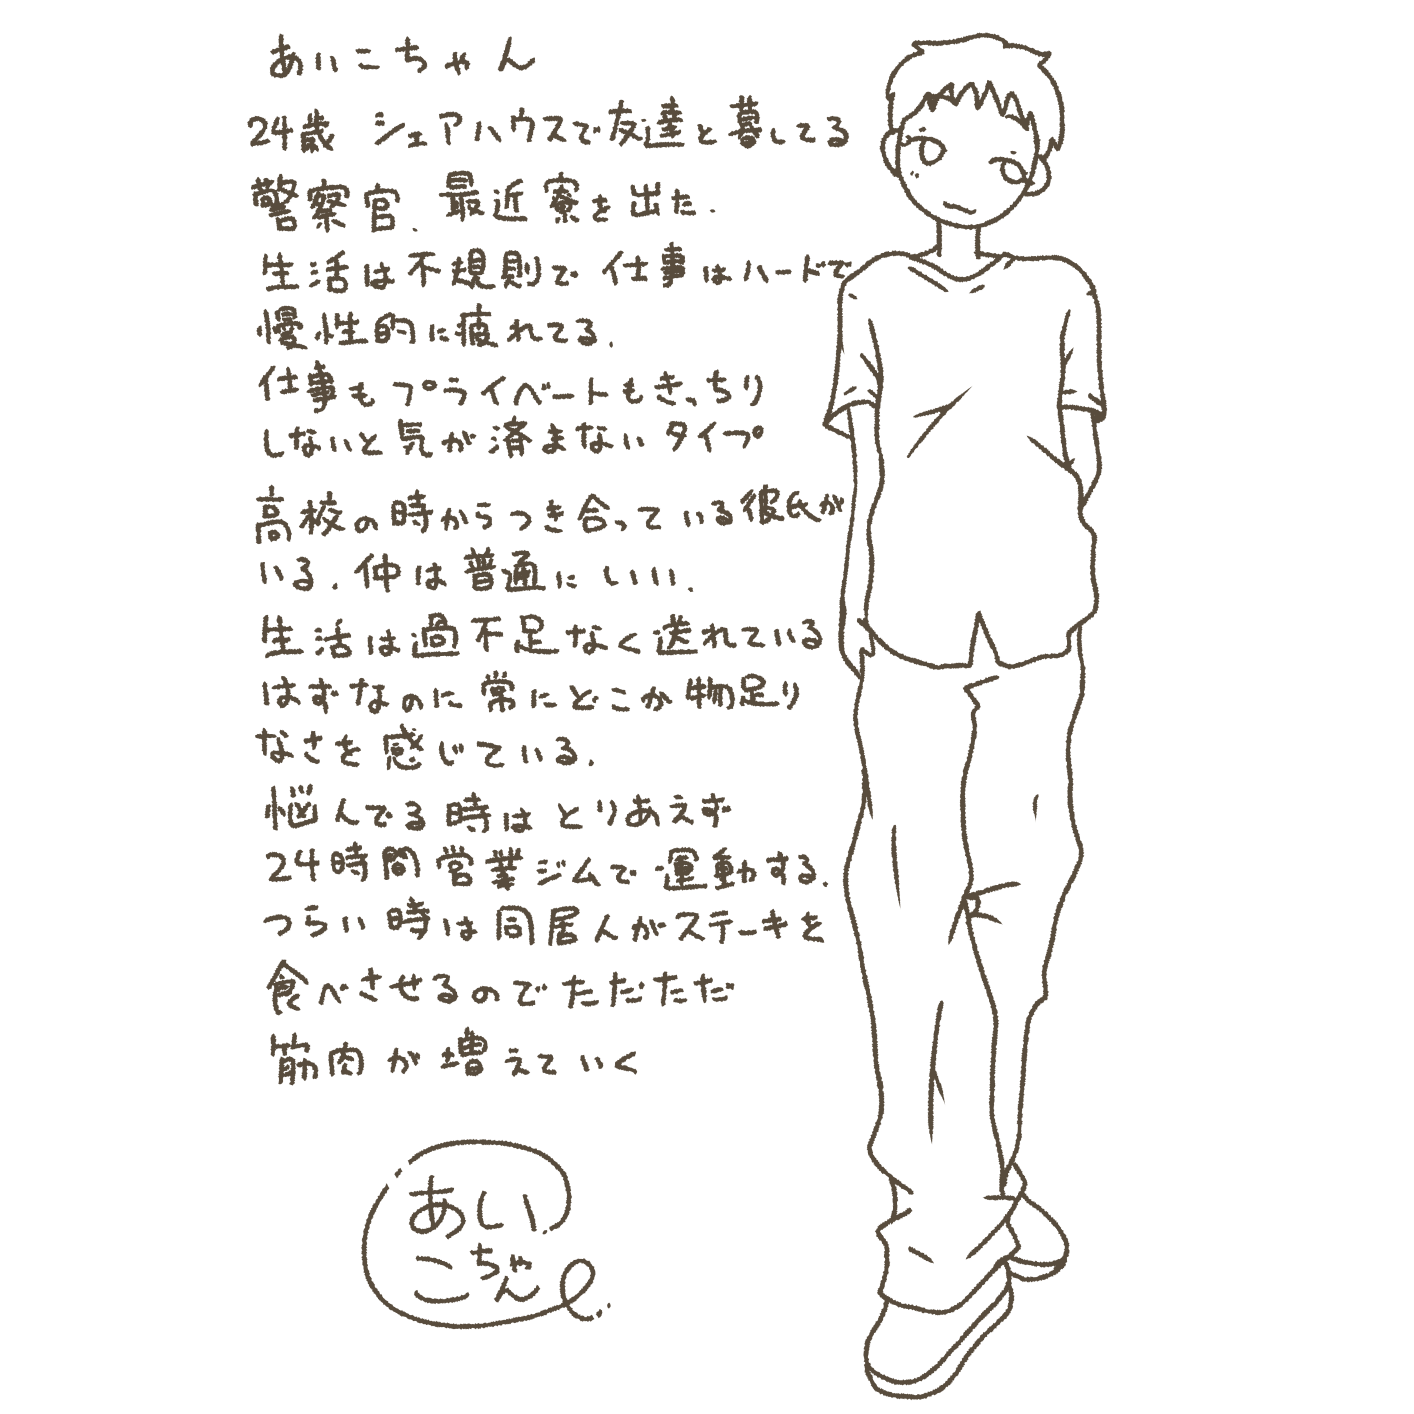 あいこちゃん
24歳 シェアハウスで友達と暮してる
警察官. 最近寮を出た.
生活は不規則で 仕事はハードで
慢性的に疲れてる.
仕事もプライベートもきっちり
しないと気が済まないタイプ
高校の時からつき合っている彼氏が
いる. 仲は普通にいい.
生活は過不足なく送れている
はずなのに常にどこか物足り
なさを感じている.
悩んでる時はとりあえず
24時間営業ジムで運動する.
つらい時は同居人がステーキを
食べさせるのでただただ
筋肉が増えていく
あい
こちゃん